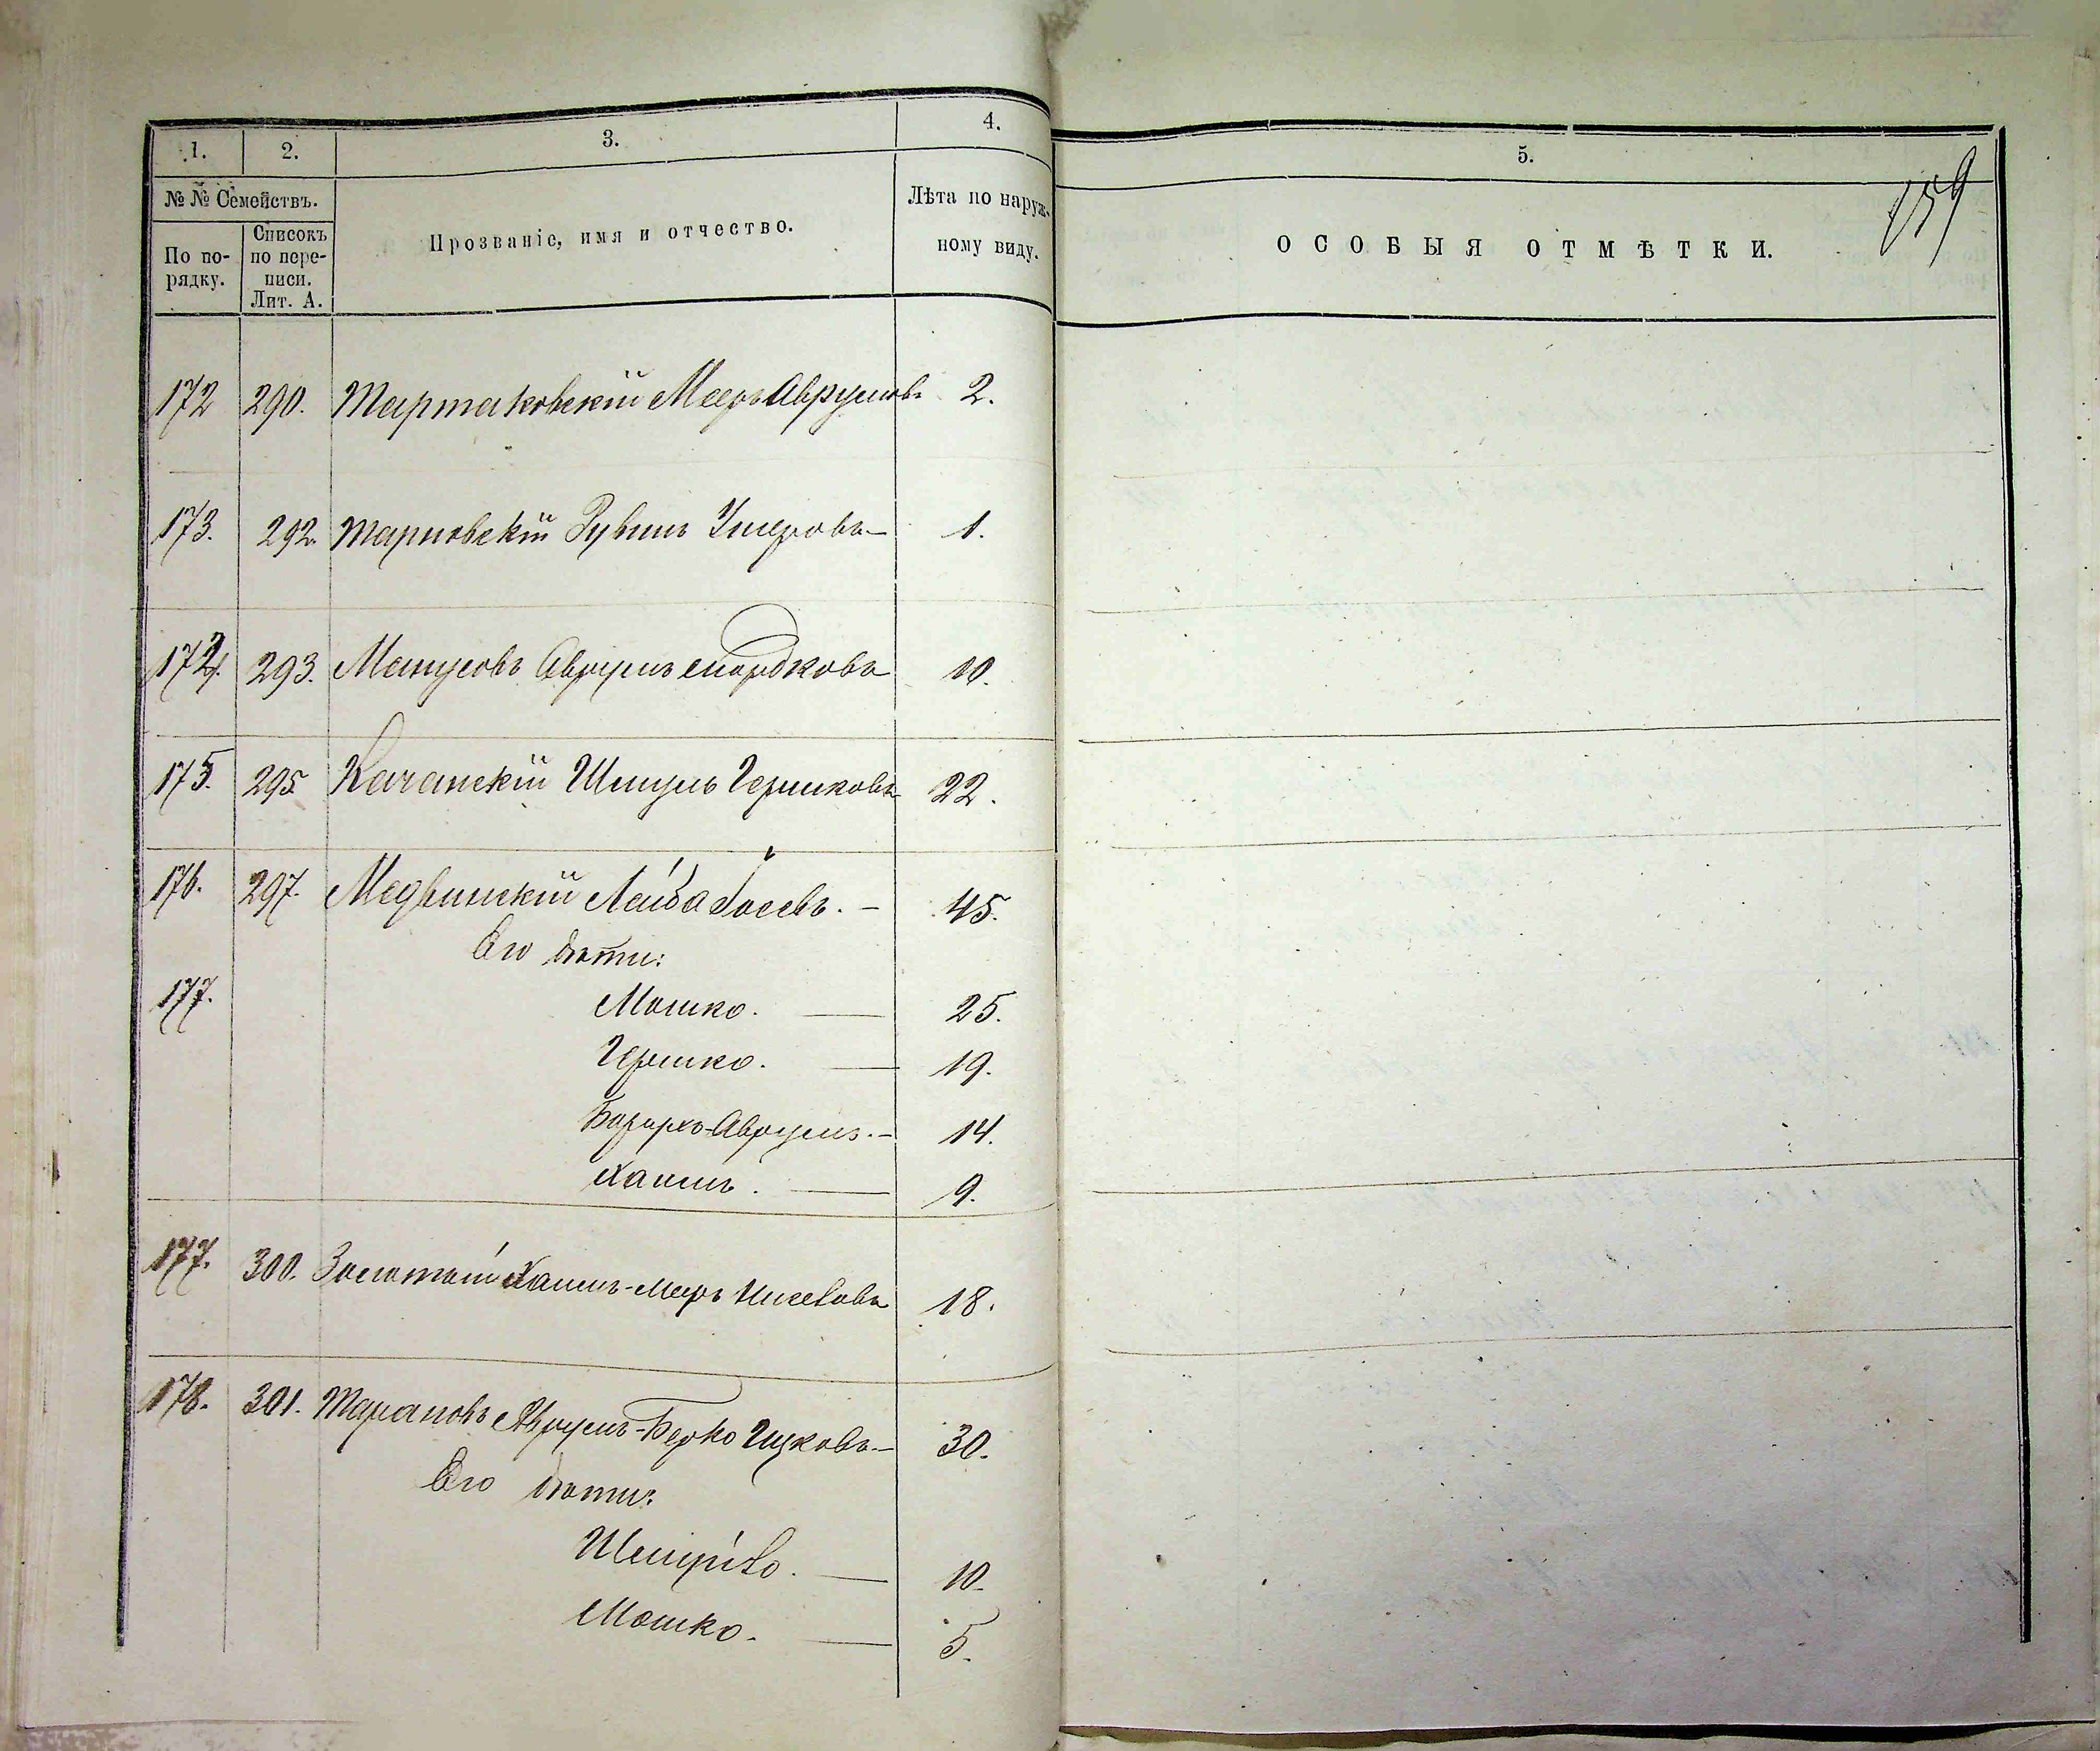 1.
2.
3.
4.
5.
159
№ № Семействъ.
По по-
рядку.
Списокъ
по пере-
писи.
Лит. А.
Прозваніе, имя и отчество.
Лѣта по наруж-
ному виду.
ОСОБЫЯ ОТМѢТКИ.
172 290. Тартаковскій Мееръ Аврумовъ 2.
173. 292. Тарновскій Рувинъ Умеровъ— 1.
174. 293. Манусовъ Аврумъ Мордковъ 10.
175. 295. Качанскій Шмуль Гершковъ 22.
176. 297. Медвинскій Лейба Іосевъ. — 45.
Его дѣти:
177. Мошко. — 25.
Гершко. — 19.
Борухъ-Аврумъ. — 14.
Хаимъ. — 9.
177. 300. Золотой Хаимъ-Мееръ 18.
178. 301. Тарановъ Аврумъ-Берко Ицковъ— 30.
Его дѣти:
— 10.
Мошко. — 5.